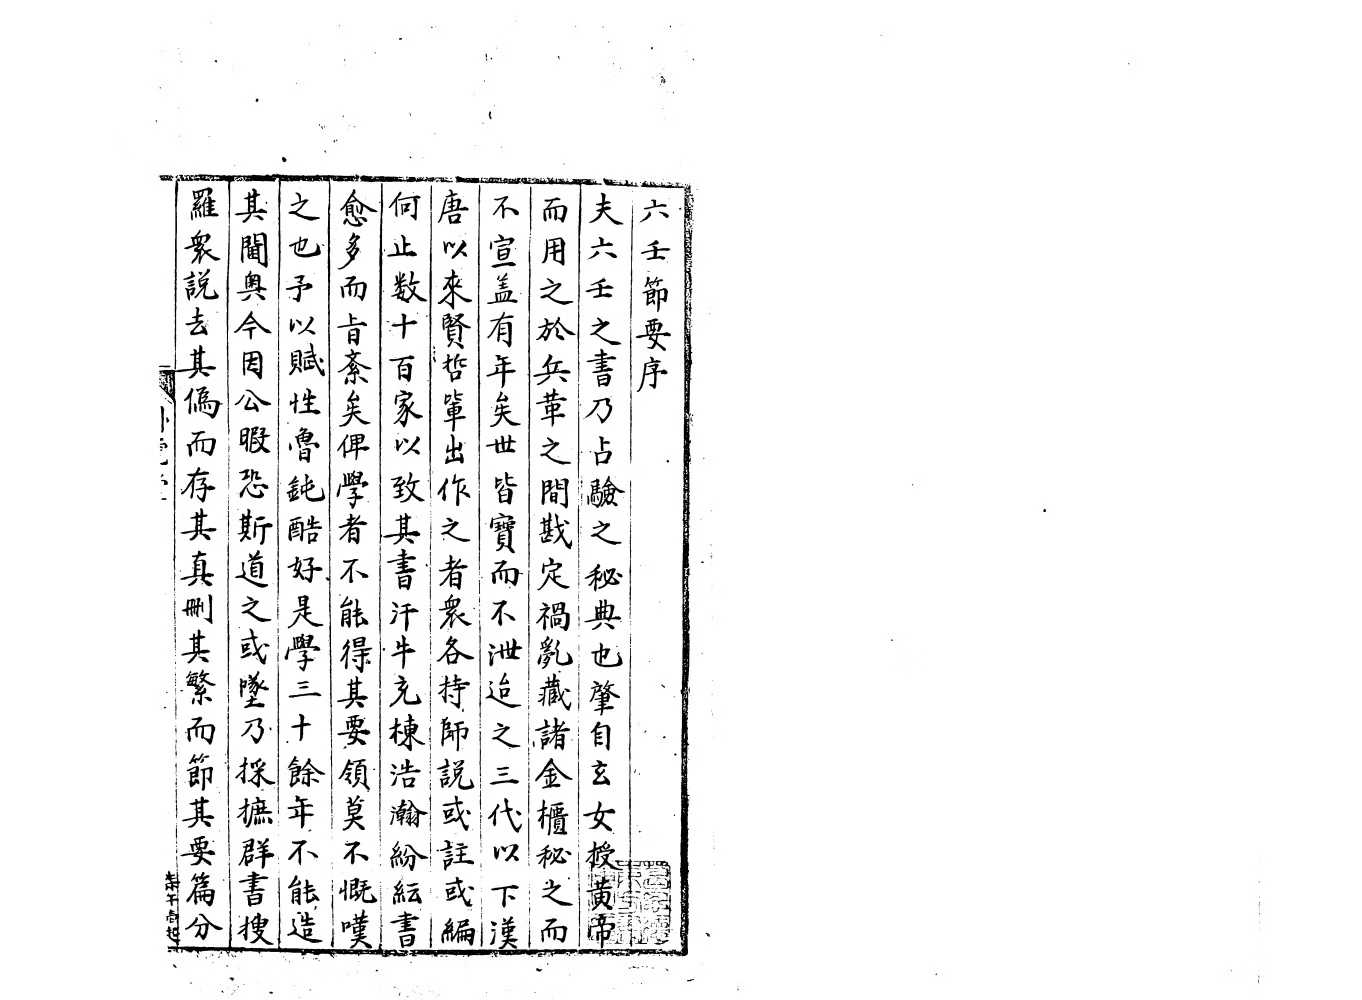 六壬節要序
夫六壬之書乃占驗之秘典也肇自玄女授黄帝
而用之於兵革之間戡定禍亂藏諸金櫃秘之而
不宣盖有年矣世皆寶而不泄迨之三代以下漢
唐以來賢哲輩出作之者衆各持師説或註或編
何止数十百家以致其書汗牛充棟浩瀚紛紜書
愈多而旨紊矣俾學者不能得其要領莫不慨嘆
之也予以賦性魯鈍酷好是學三十餘年不能造
其閫奥今因公暇恐斯道之或墜乃採摭群書搜
羅衆説去其僞而存其真刪其繁而節其要篇分